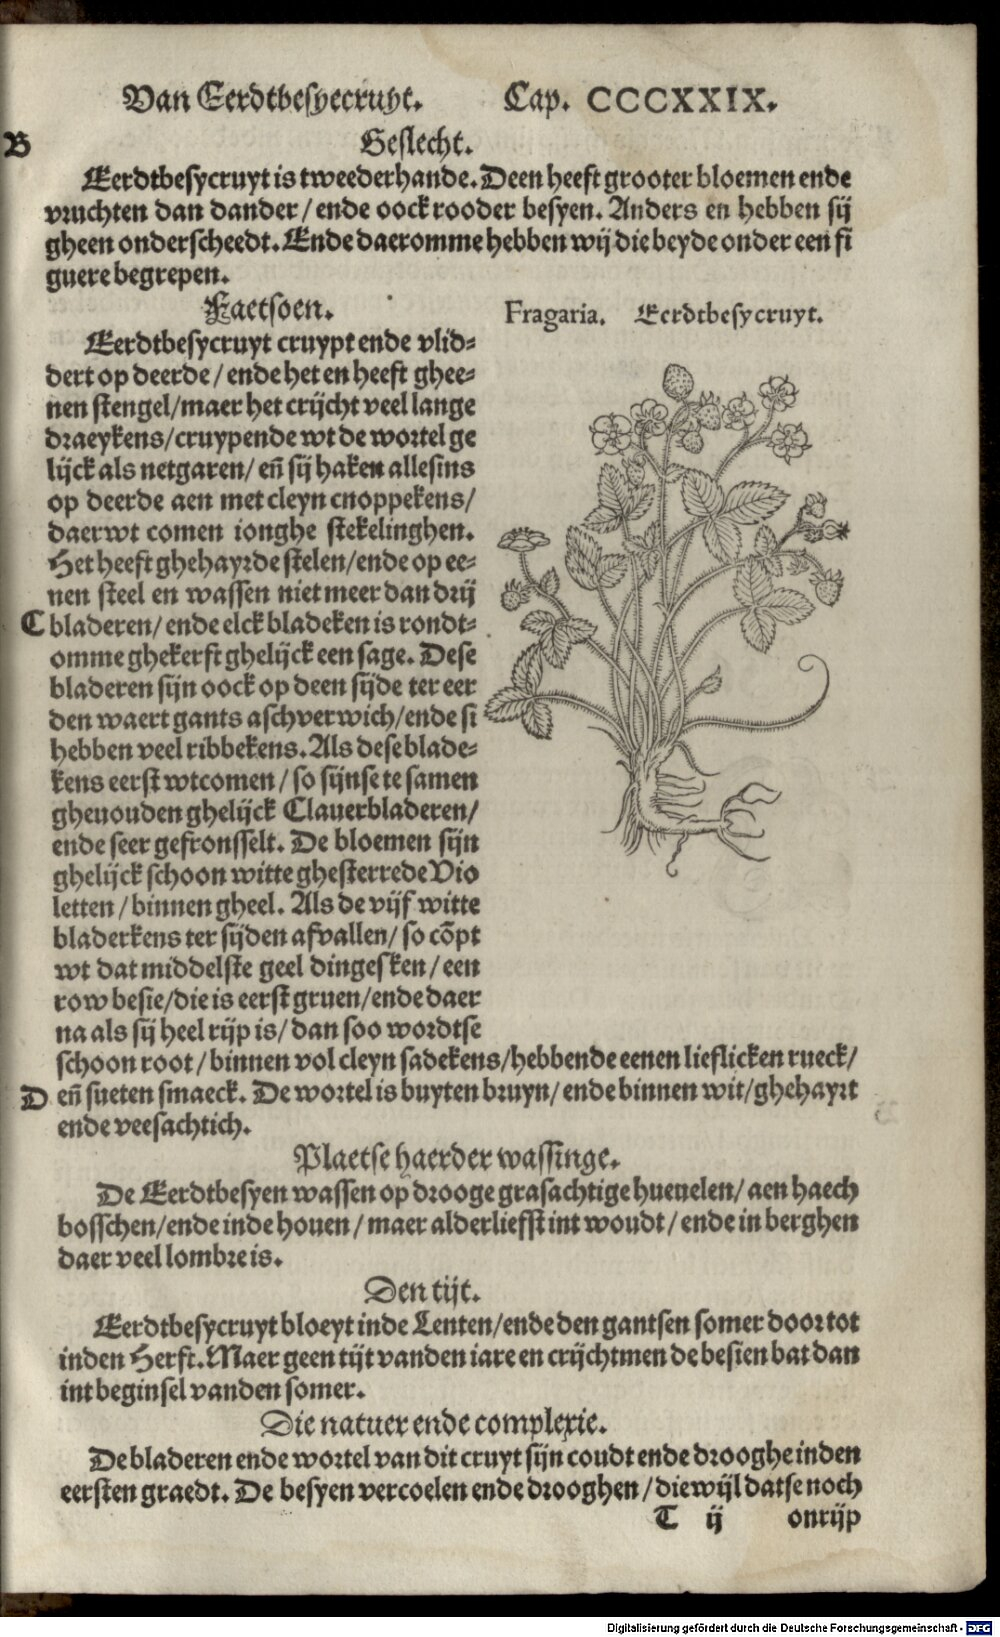 Van Eerdtbesyecruyt. Cap. CCCXXIX.
B
Geslecht.
Eerdtbesycruyt is tweederhande. Deen heeft grooter bloemen ende
vruchten dan dander / ende oock rooder besyen. Anders en hebben sij
gheen onderscheedt. Ende daeromme hebben wij die beyde onder een fi
guere begrepen.
Faetsoen.
Eerdtbesycruyt cruypt ende vlid⸗
dert op deerde / ende het en heeft ghee⸗
nen stengel/maer het crijcht veel lange
draeykens/cruypende wt de wortel ge
lijck als netgaren/ eñ sij haken allesins
op deerde aen met cleyn cnoppekens/
daer wt comen ionghe stekelinghen.
Het heeft ghehayrde stelen/ende op ee⸗
nen steel en wassen niet meer dan drij
C bladeren/ ende elck bladeken is rondt⸗
omme ghekerft ghelijck een sage. Dese
bladeren sijn oock op deen sijde ter eer
den waert gants aschverwich/ende si
hebben veel ribbekens. Als dese blade⸗
kens eerst wtcomen / so sijnse te samen
gheuouden ghelijck Clauerbladeren/
ende seer gefronsselt. De bloemen sijn
ghelijck schoon witte ghesterrede Vio
letten / binnen gheel. Als de vijf witte
bladerkens ter sijden afvallen/ so cõpt
wt dat middelste geel dingesken / een
row besie/die is eerst gruen/ende daer
na als sij heel rijp is/ dan soo wordtse
schoon root / binnen vol cleyn sadekens/hebbende eenen lieflicken rueck/
D eñ sueten smaeck. De wortel is buyten bruyn/ ende binnen wit/ghehayrt
ende veesachtich.
Fragaria. Eerdtbesycruyt.
Plaetse haerder wassinge.
De Eerdtbesyen wassen op drooge grasachtige hueuelen/ aen haech
bosschen/ende inde houen / maer alderliefst int woudt / ende in berghen
daer veel lombre is.
Den tijt.
Eerdtbesycruyt bloeyt inde Lenten/ende den gantsen somer door tot
inden Herfst. Maer geen tijt vanden iare en crijchtmen de besien bat dan
int beginsel vanden somer.
Die natuer ende complexie.
De bladeren ende wortel van dit cruyt sijn coudt ende drooghe inden
eersten graedt. De besyen vercoelen ende drooghen / die wijl datse noch
T ij onrijp
Digitalisierung gefördert durch die Deutsche Forschungsgemeinschaft - DFG